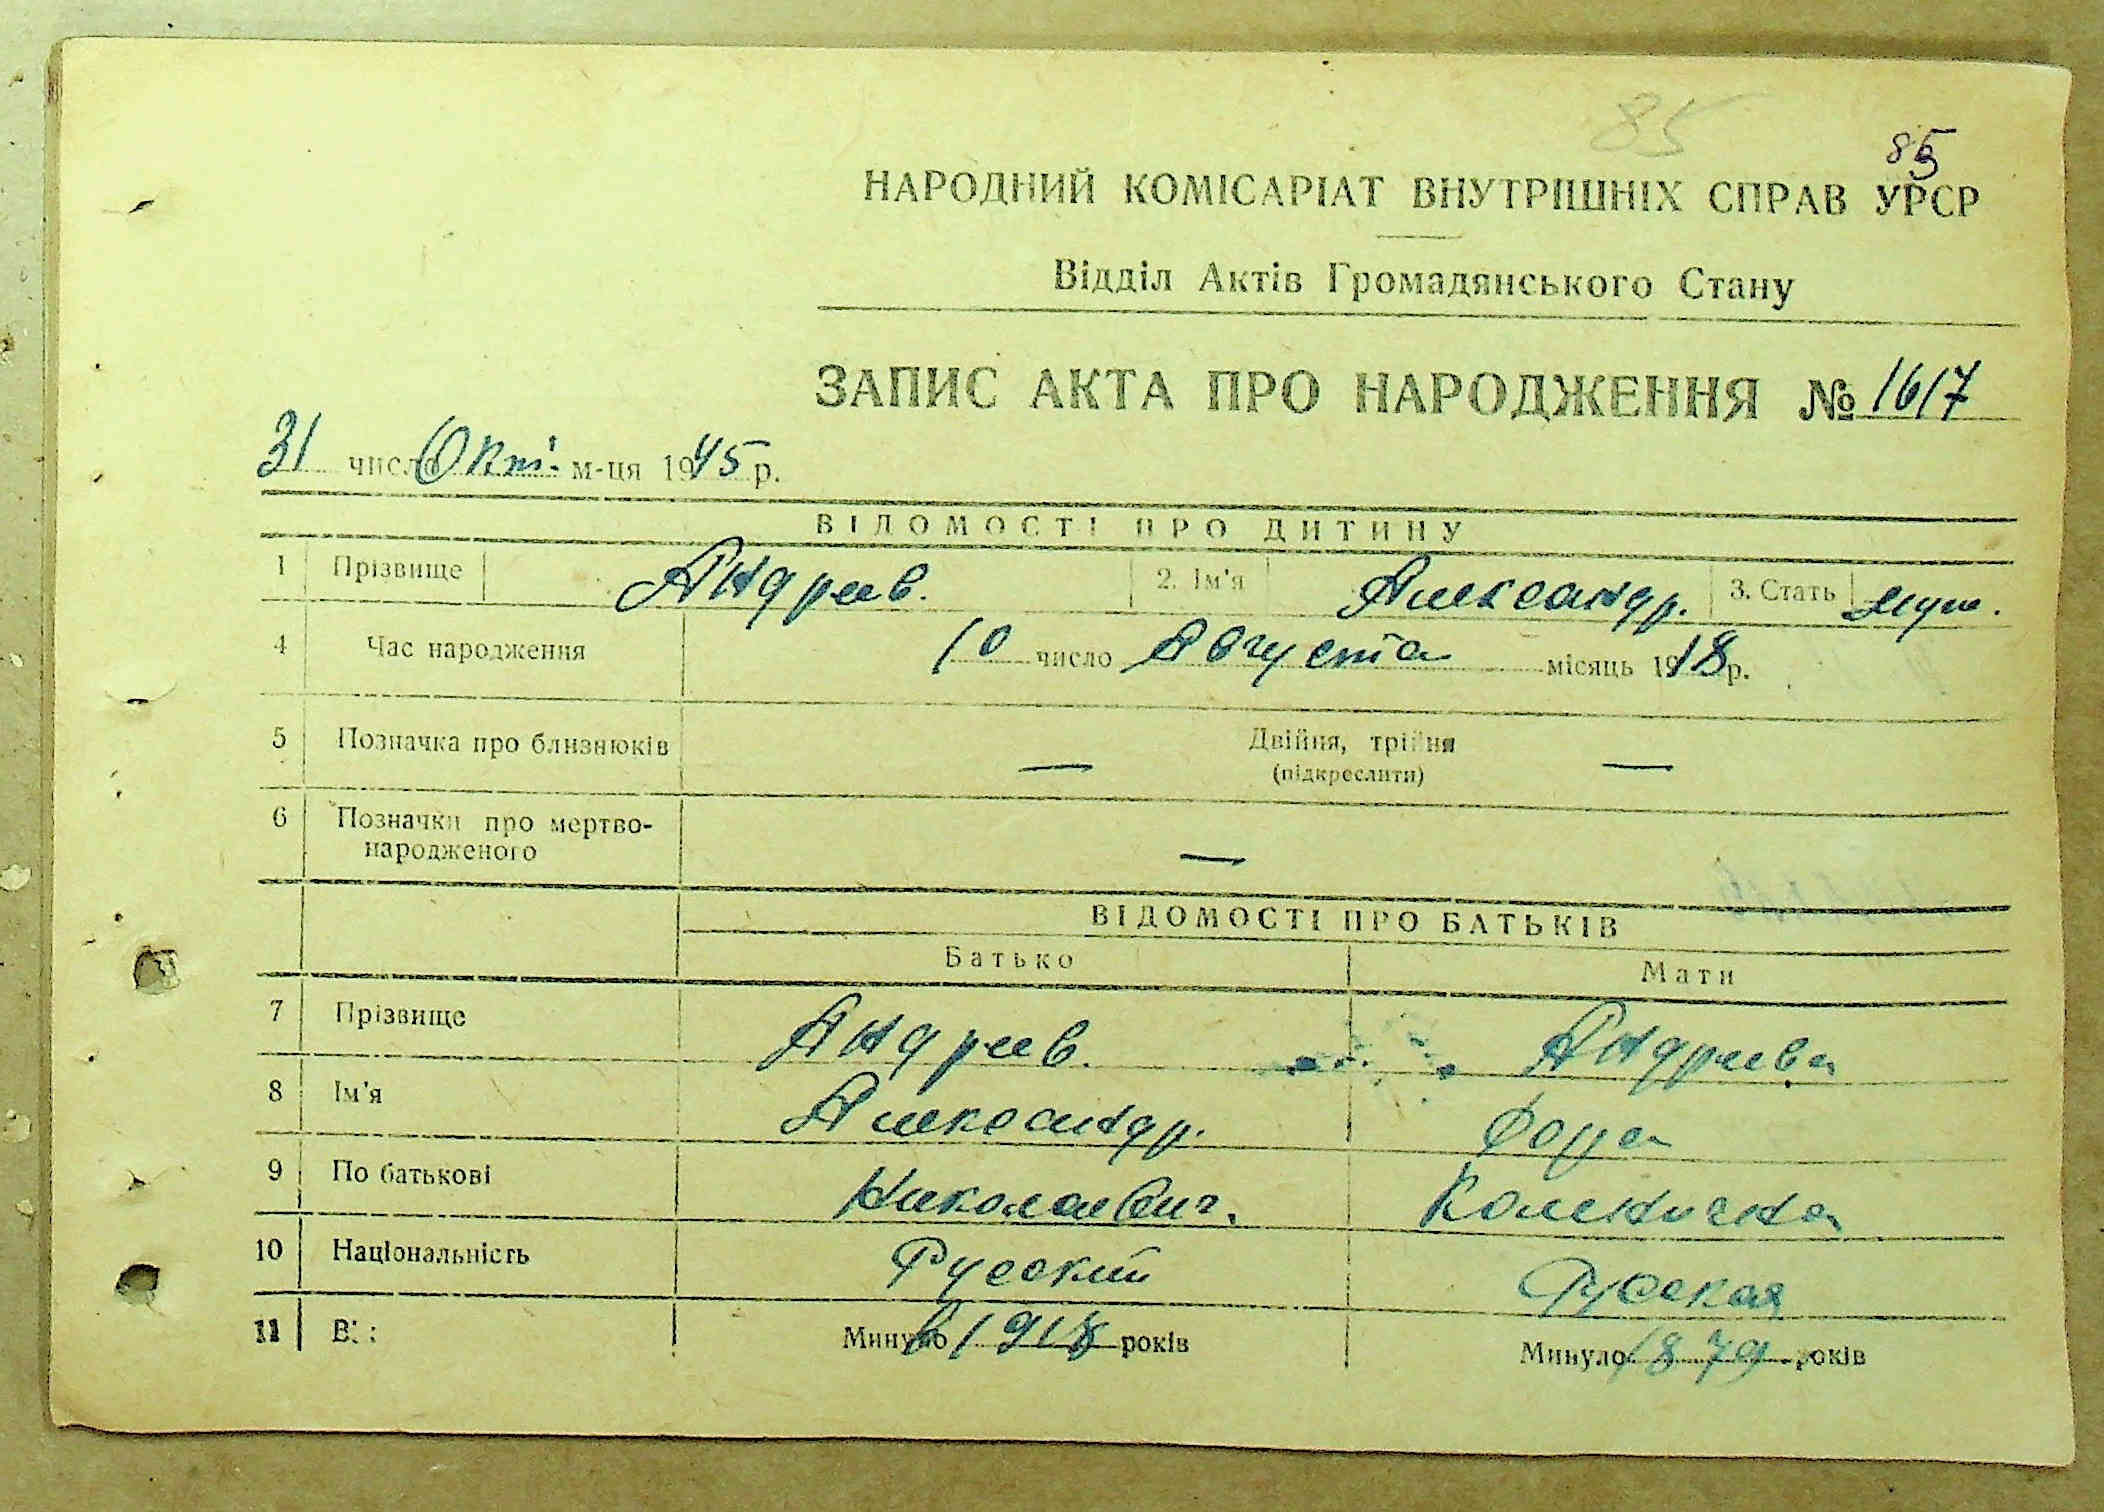 85
85
НАРОДНИЙ КОМІСАРІАТ ВНУТРІШНІХ СПРАВ УРСР
Відділ Актів Громадянського Стану
ЗАПИС АКТА ПРО НАРОДЖЕННЯ № 1617
31 число Окт. м-ця 1945 р.
ВІДОМОСТІ ПРО ДИТИНУ
1 Прізвище Андреев. 2. Ім'я Александр. 3. Стать муж.
4 Час народження 10 число Августа місяць 1918 р.
5 Позначка про близнюків — Двійня, трійня —
(підкреслити)
6 Позначки про мертво-
народженого —
ВІДОМОСТІ ПРО БАТЬКІВ
Батько Мати
7 Прізвище Андреев. Андреева
8 Ім'я Александр.
9 По батькові Николаевич.
10 Національність Русский Русская
11 Ві Минуло 1918 років Минуло 1879 років